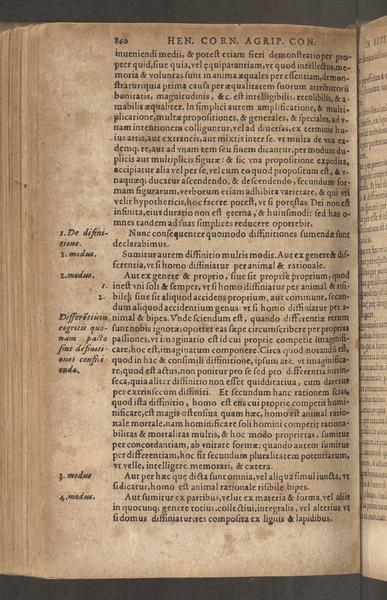 860 HEN. CORN. AGRIP. CON.
inueniendi medii, & potest etiam fieri demonstratio per pro
pter quid, siue quia, vel ęquiparantiam, vt quod intellectus, me
moria & voluntas sunt in anima æquales per essentiam, demon
stratur: quia prima causa per æqualitatem suorum attributorũ
bonitatis, magnitudinis, &c. est intelligibilis, recolibilis, & a-
mabilis æqualiter. In simplici autem amplificatione, & multi-
plicatione, multæ propositiones, & generales, & speciales, ad v-
nam intentionem colliguntur, vel ad diuersas, ex terminis hu
ius artis, aut extraneis, aut mixtis inter se. vt multa de vna ea-
demq; re, aut ad vnam rem seu finem dicantur, per modum du
plicis aut multiplicis figuræ: & sic vna propositione expedita,
accipiatur alia vel per se, vel cum eo quod propositum est, & v-
naquæq; ducatur ascendendo, & descendendo, secundum for-
mam figurarum, verborum etiam adhibita varietate, & qui vti
velit hypotheticis, hoc facere potest, vt si potestas Dei non est
infinita, eius duratio non est ęterna, & huiusmodi: sed has o-
mnes tandem ad suas simplices reducere oportebit.
1. De difini-
tione.
Nunc consequenter quomodo diffinitiones sumendæ sunt
declarabimus.
1. modus.
Sumitur autem diffinitio multis modis. Aut ex genere & dif-
ferentia, vt si homo diffiniatur per animal & rationale.
2. modus.
Aut ex genere & proprio, siue sit propriè proprium, quod
1.
inest vni soli & semper, vt si homo diffiniatur per animal & risi-
2.
bile: siue sit aliquod accidens proprium, aut commune, secun-
dum aliquod accidentium genus vt si homo diffiniatur per a-
Differẽtiis in
cognitis quo-
nam pacto
sint definiti-
ones confici-
endæ.
nimal & bipes. Vnde sciendum est, quando differentiæ rerum
sunt nobis ignotæ, oportet eas sæpe circumscribere per proprias
passiones, vt imaginatio est id cui proprie competit imaginifi-
care, hoc est, imaginatum componere. Circa quod notandũ est,
quod in hac & consimili diffinitione, ipsum arc. vt imaginifica-
re, quod est actus, non ponitur pro se sed pro differentia intrin
seca, quia aliter diffinitio non esset quidditatiua, cum daretur
per extrinsecum diffiniti. Et secundum hanc rationem scias,
quod ista diffinitio, homo est ens cui proprie competit homi-
nificare, est magis ostensiua quam hæc, homo est animal ratio-
nale mortale. nam hominificare soli homini competit rationa-
bilitas & mortalitas multis, & hoc modo proprietas, sumitur
per concordantiam, ab vnitate formæ: quando autem sumitur
per differentiam, hoc fit secundum pluralitatem potentiarum,
vt velle, intelligere. memorari, & cætera.
3. modus
Aut per hæc quę dicta sunt omnia, vel aliqua simul iuncta, vt
si dicatur, homo est animal rationale risibile bipes.
4. modus.
Aut sumitur ex partibus, velut ex materia & forma, vel aliis
in quocunq; genere totius, collectiui, integralis, vel alterius vt
si domus diffiniatur: res composita ex lignis & lapidibus.